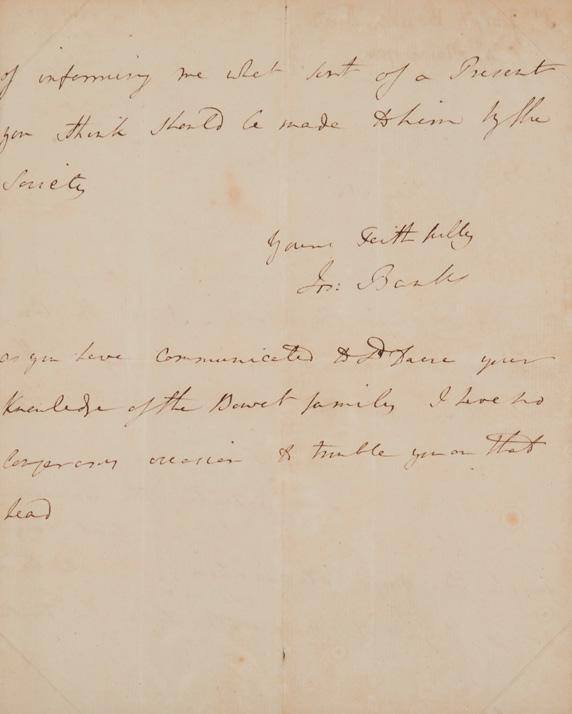 of informing me what sort of a Present
you think should be made to him by the
Society
Yours Faithfully
Jos: Banks
as you have communicated to Dr your
Knowledge of the family I have no
occasion to trouble you on that
head